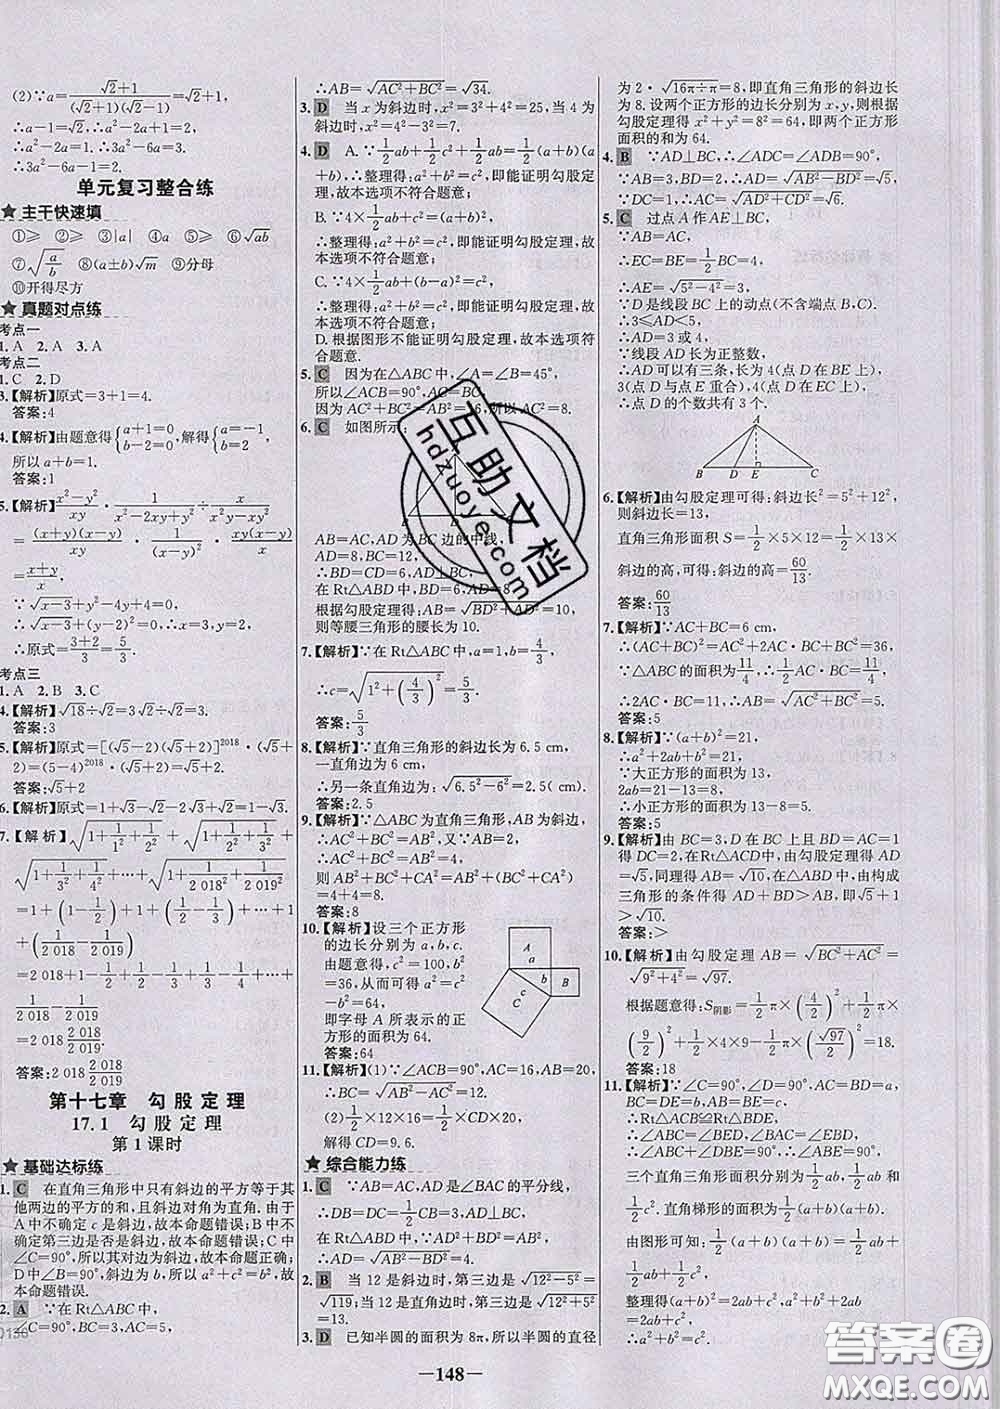 (2)∵a=√2+1/(√2+1)(√2-1)=√2+1,
∴a-1=√2,∴a²-2a+1=2,
∴a²-2a=1.∴3a²-6a=3.
∴3a²-6a-1=2.
单元复习整合练
★ 主干快速填
①≥ ②≥ ③|a| ④a ⑤≥ ⑥√ab
⑦√(a/b) ⑧(a±b)√m ⑨分母
⑩开得尽方
★ 真题对点练
考点一
1.A 2.A 3.A
考点二
1.C 2.D
3.【解析】原式=3+1=4.
答案:4
4.【解析】由题意得{a+1=0, b-2=0,解得{a=-1, b=2,
所以a+b=1.
答案:1
5.【解析】(x²-y²)/xy·1/(x²-2xy+y²)÷1/(x-y)
=(x+y)(x-y)/xy·1/(x-y)²·(x-y)
=(x+y)/xy.
∵√(x-3)+y²-4y+4=0,
∴√(x-3)+(y-2)²=0,∴x=3,y=2,
∴原式=(3+2)/(3×2)=5/6.
考点三
1.A 2.B 3.C
4.【解析】√18÷√2=3√2÷√2=3.
答案:3
5.【解析】原式=[(√5-2)(√5+2)]²⁰¹⁸·(√5
+2)=(5-4)²⁰¹⁸·(√5+2)=√5+2.
答案:√5+2
6.【解析】原式=1+√3-2√3+√3-√3=1-√3.
7.【解析】√(1+1/1²+1/2²)+√(1+1/2²+1/3²)+
√(1+1/3²+1/4²)+…+√(1+1/2 018²+1/2 019²)
=1+(1-1/2)+1+(1/2-1/3)+…+1
+(1/2 018-1/2 019)
=2 018+1-1/2+1/2-1/3+1/3-1/4+…+
1/2 018-1/2 019
=2 018 2 018/2 019.
答案:2 018 2 018/2 019
第十七章 勾股定理
17.1 勾股定理
第1课时
★ 基础达标练
1. C 在直角三角形中只有斜边的平方等于其
他两边的平方的和,且斜边对角为直角.由于
A中不确定c是斜边,故本命题错误;B中不
确定第三边是否是斜边,故本命题错误;C中
∠C=90°,所以其对边为斜边,故本命题正确;
D中∠B=90°,斜边为b,所以a²+c²=b²,故
本命题错误.
2. A ∵在Rt△ABC中,
∠C=90°,BC=3,AC=5,
∴AB=√(AC²+BC²)=√34.
3. D 当x为斜边时,x²=3²+4²=25,当4为
斜边时,x²=4²-3²=7.
4. D A.∵1/2ab+1/2c²+1/2ab=1/2(a+b)(a
+b),∴整理得:a²+b²=c²,即能证明勾股
定理,故本选项不符合题意;
B.∵4×1/2ab+c²=(a+b)²,
∴整理得:a²+b²=c²,即能证明勾股定理,故
本选项不符合题意;
C.∵4×1/2ab+(b-a)²=c²,
∴整理得:a²+b²=c²,即能证明勾股定理,故
本选项不符合题意;
D.根据图形不能证明勾股定理,故本选项符
合题意.
5. C 因为在△ABC中,∠A=∠B=45°,
所以∠ACB=90°,AC=BC.
因为AC²+BC²=AB²=16,所以AC²=8.
6. C 如图所示
AB=AC,AD为BC边的中线,
AD=8,BC=12,
∴BD=CD=6,AD⊥BC,
在Rt△ABD中,BD=6,AD=8
根据勾股定理得:AB=√(BD²+AD²)=10,
则等腰三角形的腰长为10.
7.【解析】∵在Rt△ABC中,a=1,b=4/3,
∴c=√(1²+(4/3)²)=5/3.
答案:5/3
8.【解析】∵直角三角形的斜边长为6.5 cm,
一直角边为6 cm,
∴另一条直角边为:√(6.5²-6²)=2.5(cm).
答案:2.5
9.【解析】∵△ABC为直角三角形,AB为斜边,
∴AC²+BC²=AB²,又∵AB=2,
则AB²+BC²+CA²=AB²+(BC²+CA²)
=4+4=8.
答案:8
10.【解析】设三个正方形
的边长分别为a,b,c.
由题意得,c²=100,b²
=36,从而可得a²=c²
-b²=64,
即字母A所表示的正
方形的面积为64.
答案:64
A
a
b B
c
C
11.【解析】(1)∵∠ACB=90°,AC=16,AB=20,
∴BC=√(AB²-AC²)=12.
(2)1/2×12×16=1/2×20×CD,
解得CD=9.6.
★ 综合能力练
1. C ∵AB=AC,AD是∠BAC的平分线,
∴DB=DC=1/2CB=3,AD⊥BC,
在Rt△ABD中,∵AD²+BD²=AB²,
∴AD=√(AB²-BD²)=4.
2. B 当12是斜边时,第三边是√(12²-5²)=
√119;当12是直角边时,第三边是√(12²+5²)
=13.
3. D 已知半圆的面积为8π,所以半圆的直径
为2·√(16π÷π)=8,即直角三角形的斜边长
为8.设两个正方形的边长分别为x,y,则根据
勾股定理得x²+y²=8²=64,即两个正方形
面积的和为64.
4. B ∵AD⊥BC,∴∠ADC=∠ADB=90°,
∵AB=3,BD=2,∴AD=√(AB²-BD²)=√5,
∵DC=1,∴AC=√(AD²+CD²)=√6.
5. C 过点A作AE⊥BC,
∵AB=AC,
∴EC=BE=1/2BC=4,
∴AE=√(5²-4²)=3,
∵D是线段BC上的动点(不含端点B,C).
∴3≤AD<5,
∴AD=3或4,
∵线段AD长为正整数,
∴AD可以有三条,长为4(点D在BE上),
3(点D与点E重合),4(点D在EC上),
∴点D的个数共有3个.
A
B D E C
6.【解析】由勾股定理可得:斜边长²=5²+12²,
则斜边长=13,
直角三角形面积S=1/2×5×12=1/2×13×
斜边的高,可得:斜边的高=60/13.
答案:60/13
7.【解析】∵AC+BC=6 cm,
∴(AC+BC)²=AC²+2AC·BC+BC²,
∵△ABC的面积为11/4,∴1/2AC·BC=11/4,
∴2AC·BC=11,∴AB=√(AC²+BC²)=5.
答案:5
8.【解析】∵(a+b)²=21,
∴a²+2ab+b²=21,
∵大正方形的面积为13,
2ab=21-13=8,
∴小正方形的面积为13-8=5.
答案:5
9.【解析】由BC=3,D在BC上且BD=AC=1
得DC=2,在Rt△ACD中,由勾股定理得
AD=√5,同理得AB=√10,在△ABD中,由构成
三角形的条件得AD+BD>AB,即√5+1
>√10.
答案:>
10.【解析】由勾股定理AB=√(BC²+AC²)=
√(9²+4²)=√97.
根据题意得:S阴影=1/2π×(4/2)²+1/2π×
(9/2)²+1/2×4×9-1/2π×(√97/2)²=18.
答案:18
11.【解析】∵∠C=90°,∠D=90°,AC=BD=a,
BC=DE=b,AB=BE=c,
∴Rt△ACB≌Rt△BDE,
∴∠ABC=∠BED,∠BAC=∠EBD,
∵∠ABC+∠BAC=90°,
∴∠ABE=90°,
三个直角三角形面积分别为1/2ab,1/2ab和
1/2c².直角梯形的面积为1/2(a+b)(a+b).
由图形可知:1/2(a+b)(a+b)=1/2ab+
1/2ab+1/2c²,
整理得(a+b)²=2ab+c²,
∴a²+b²+2ab=2ab+c²,
∴a²+b²=c².
—148—
互助文档
hdzuoye.com
答案圈
MXQE.COM